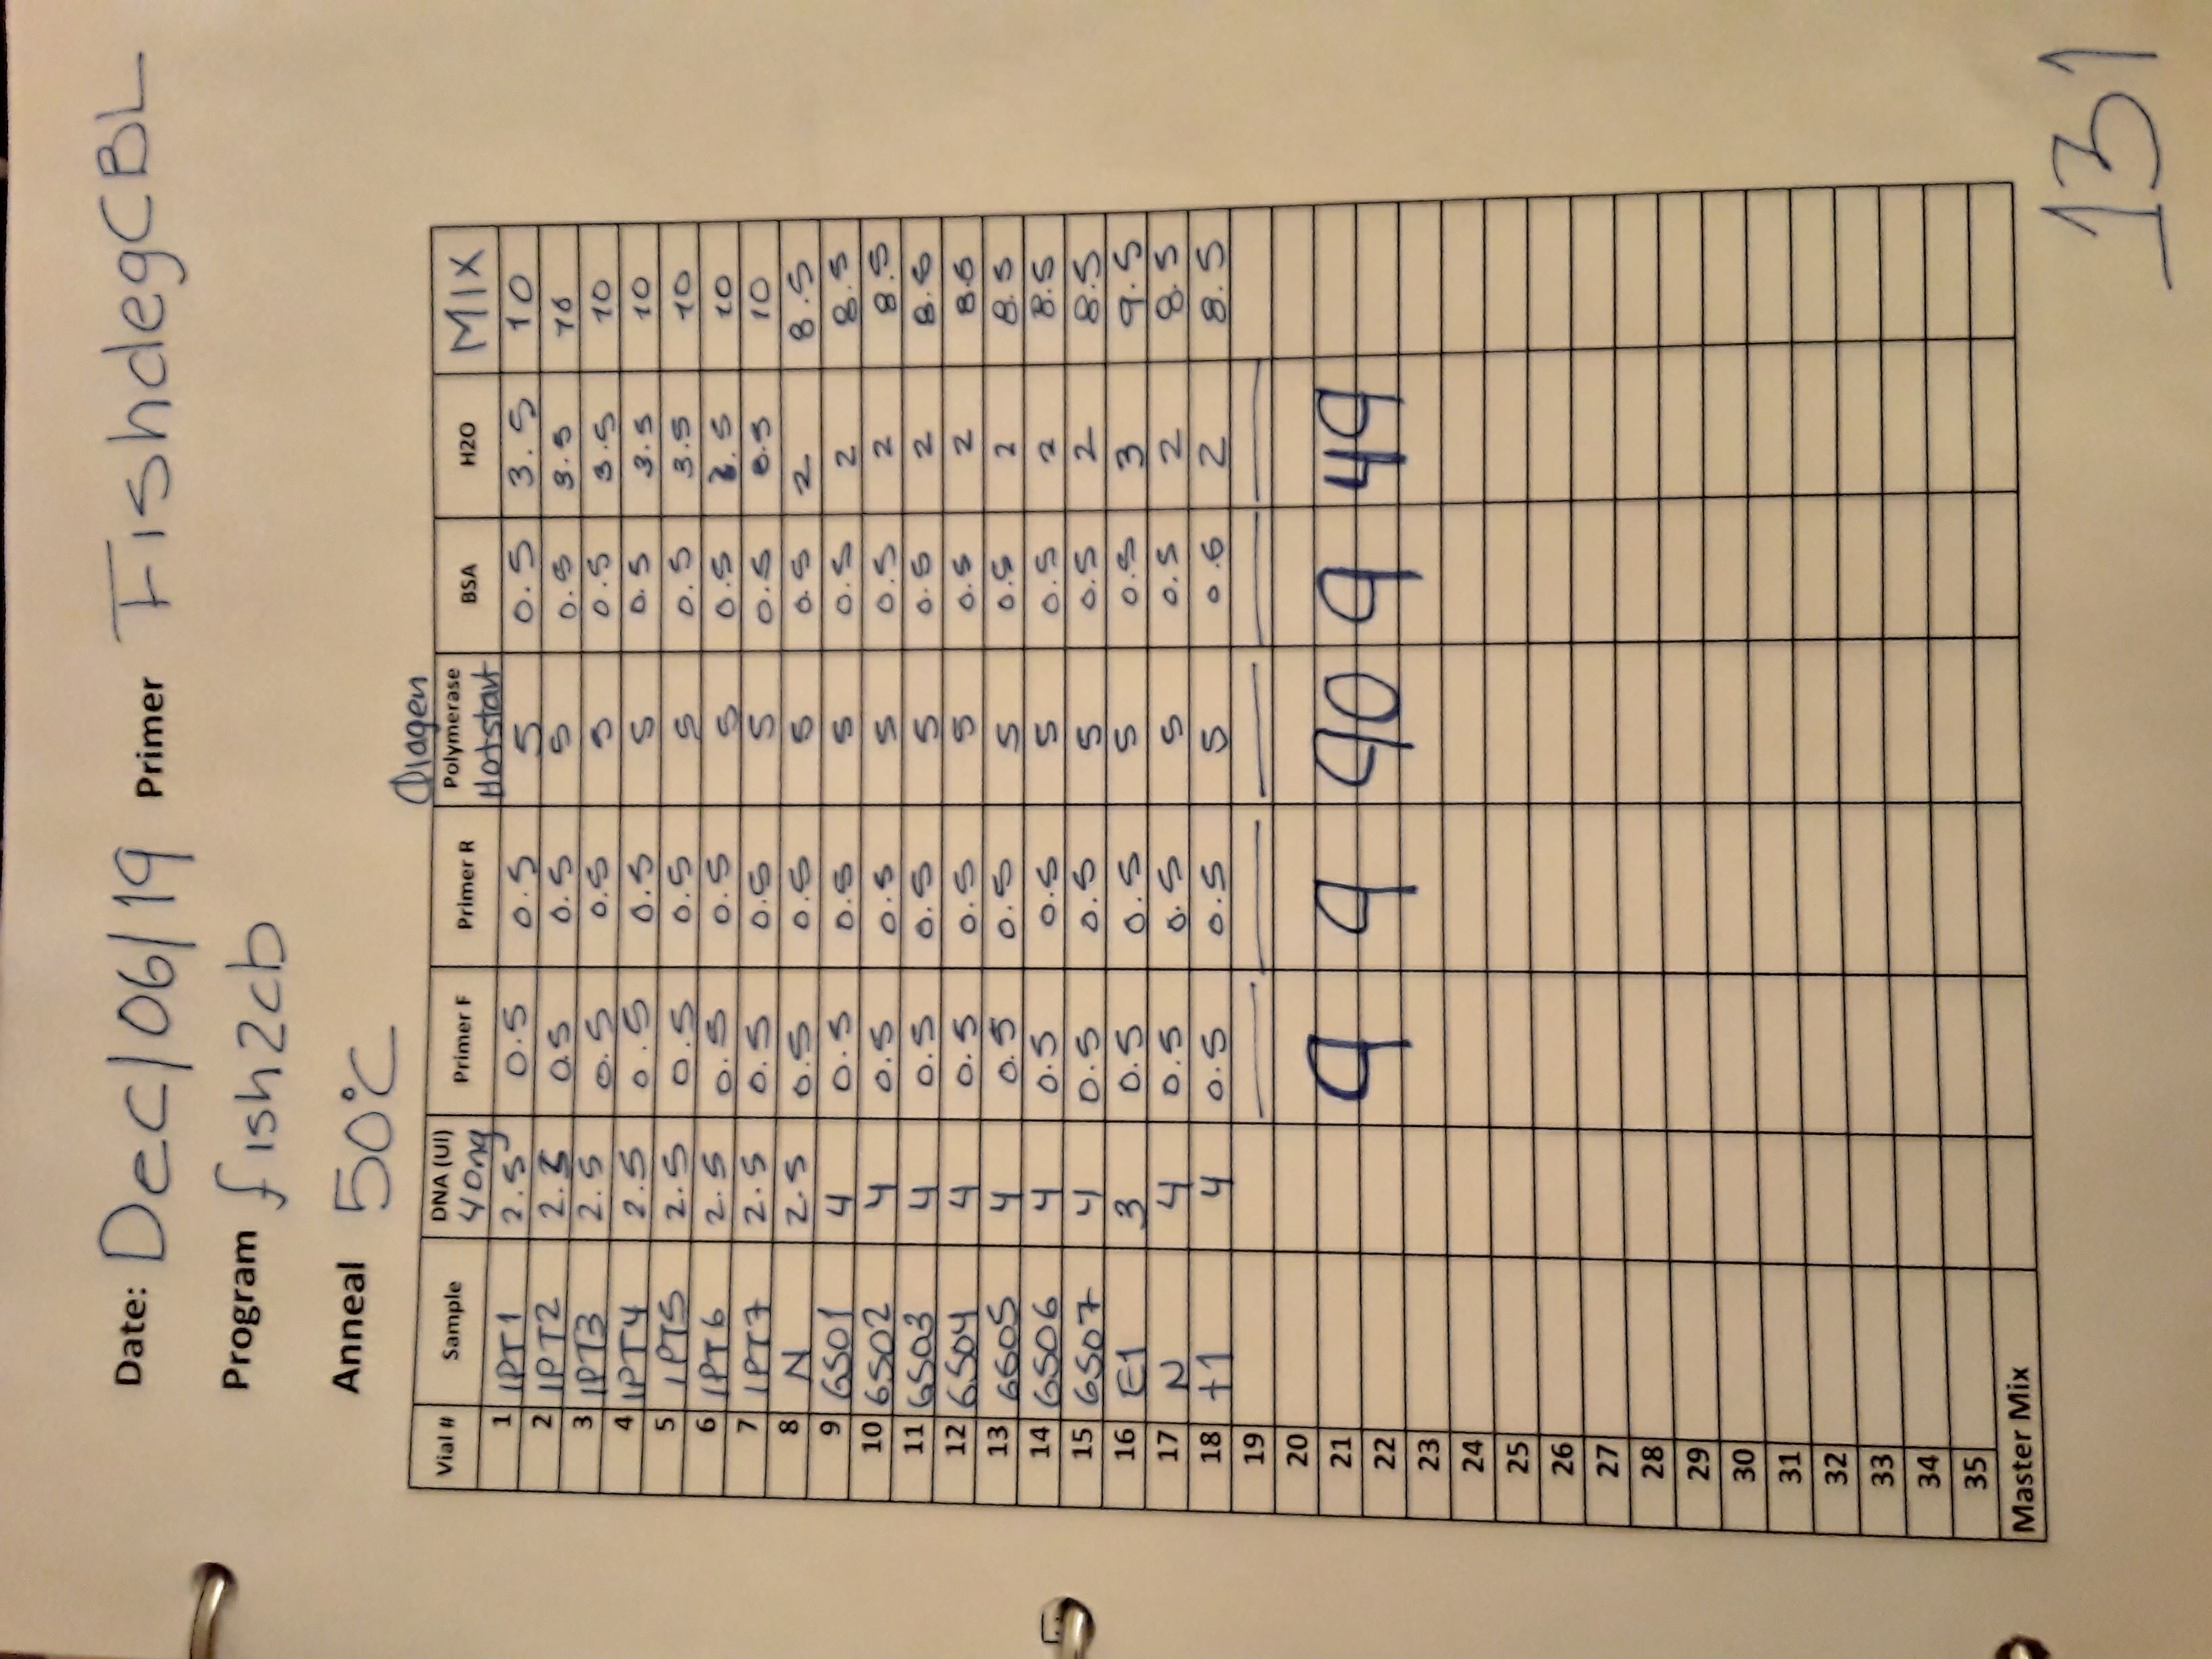 Date: Dec/06/19 Primer FishdegCBL
Program fish2cb
Anneal 50°C
Qiagen
Vial # Sample DNA (Ul) 40ng Primer F Primer R Polymerase Hotstart BSA H2O MIX
1 IPT1 2.5 0.5 0.5 5 0.5 3.5 10
2 IPT2 2.5 0.5 0.5 5 0.5 3.5 10
3 IPT3 2.5 0.5 0.5 5 0.5 3.5 10
4 IPT4 2.5 0.5 0.5 5 0.5 3.5 10
5 IPT5 2.5 0.5 0.5 5 0.5 3.5 10
6 IPT6 2.5 0.5 0.5 5 0.5 10
7 IPT7 2.5 0.5 0.5 5 0.5 10
8 N 2.5 0.5 0.5 5 0.5 2 8.5
9 GS01 4 0.5 0.5 5 0.5 2 8.5
10 GS02 4 0.5 0.5 5 0.5 2 8.5
11 GS03 4 0.5 0.5 5 0.5 2 8.5
12 GS04 4 0.5 0.5 5 0.5 2 8.5
13 GS05 4 0.5 0.5 5 0.5 2 8.5
14 GS06 4 0.5 0.5 5 0.5 2 8.5
15 GS07 4 0.5 0.5 5 0.5 2 8.5
16 E1 3 0.5 0.5 5 0.5 3 9.5
17 N 4 0.5 0.5 5 0.5 2 8.5
18 +1 4 0.5 0.5 5 0.5 2 8.5
19
20
21 9 9 90 9 49
22
23
24
25
26
27
28
29
30
31
32
33
34
35
Master Mix
131